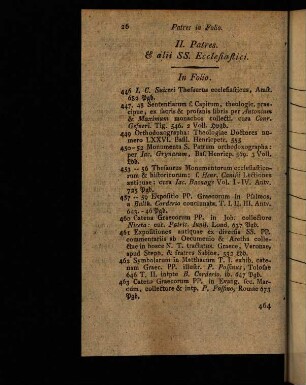 26 Patres in Folio.
II. Patres.
& alii SS. Ecclesiastici.
In Folio.
446 I. C. Suiceri Thesaurus ecclesiasticus, Amst.
682 Pgb.
447, 48 Sententiarum s. Capitum, theologic. prae-
cipue, ex sacris & profanis libris per Antonium
& Maximum monachos collecti. cura Conr.
Gesneri. Tig. 546. 2 Voll. Pgb.
449 Orthodoxographa: Theologiae Doctores nu-
mero LXXVI. Basil. Henricpetr. 555
450-52 Monumenta S. Patrum orthodoxographa:
per Iac. Grynaeum, Bas. Henricp. 569. 3 Voll.
453-56 Thesaurus Monumentorum ecclesiastico-
rum & historicorum: s. Henr. Canisii Lectiones
antiquae: cura Iac. Basnage Vol. I-IV. Antv.
725 Pgb.
457-59 Expositio PP. Graecorum in Psalmos,
a Balth. Corderio concinnata, T. I. II. III. Antv.
643-46 Pgb.
460 Catena Graecorum PP. in Job: collectore
Niceta: ed. Patric. Iunii. Lond. 637 Pgb.
461 Expositiones antiquae ex diversis SS. PP.
commentariis ab Oecumenio & Aretha colle-
ctae in hosce N. T. tractatus. Graece, Veronae,
apud Steph. & fratres Sabios, 532
462 Symbolarum in Matthaeum T. I. exhib. cate-
nam Graec. PP. illustr. P. Possinus, Tolosae
646 T. II. intpte B. Corderio. ib. 647 Pgb.
463 Catena Graecorum PP. in Evang. sec. Mar-
cum, collectore & intp. P. Possino, Romae 673
Pgb.
464